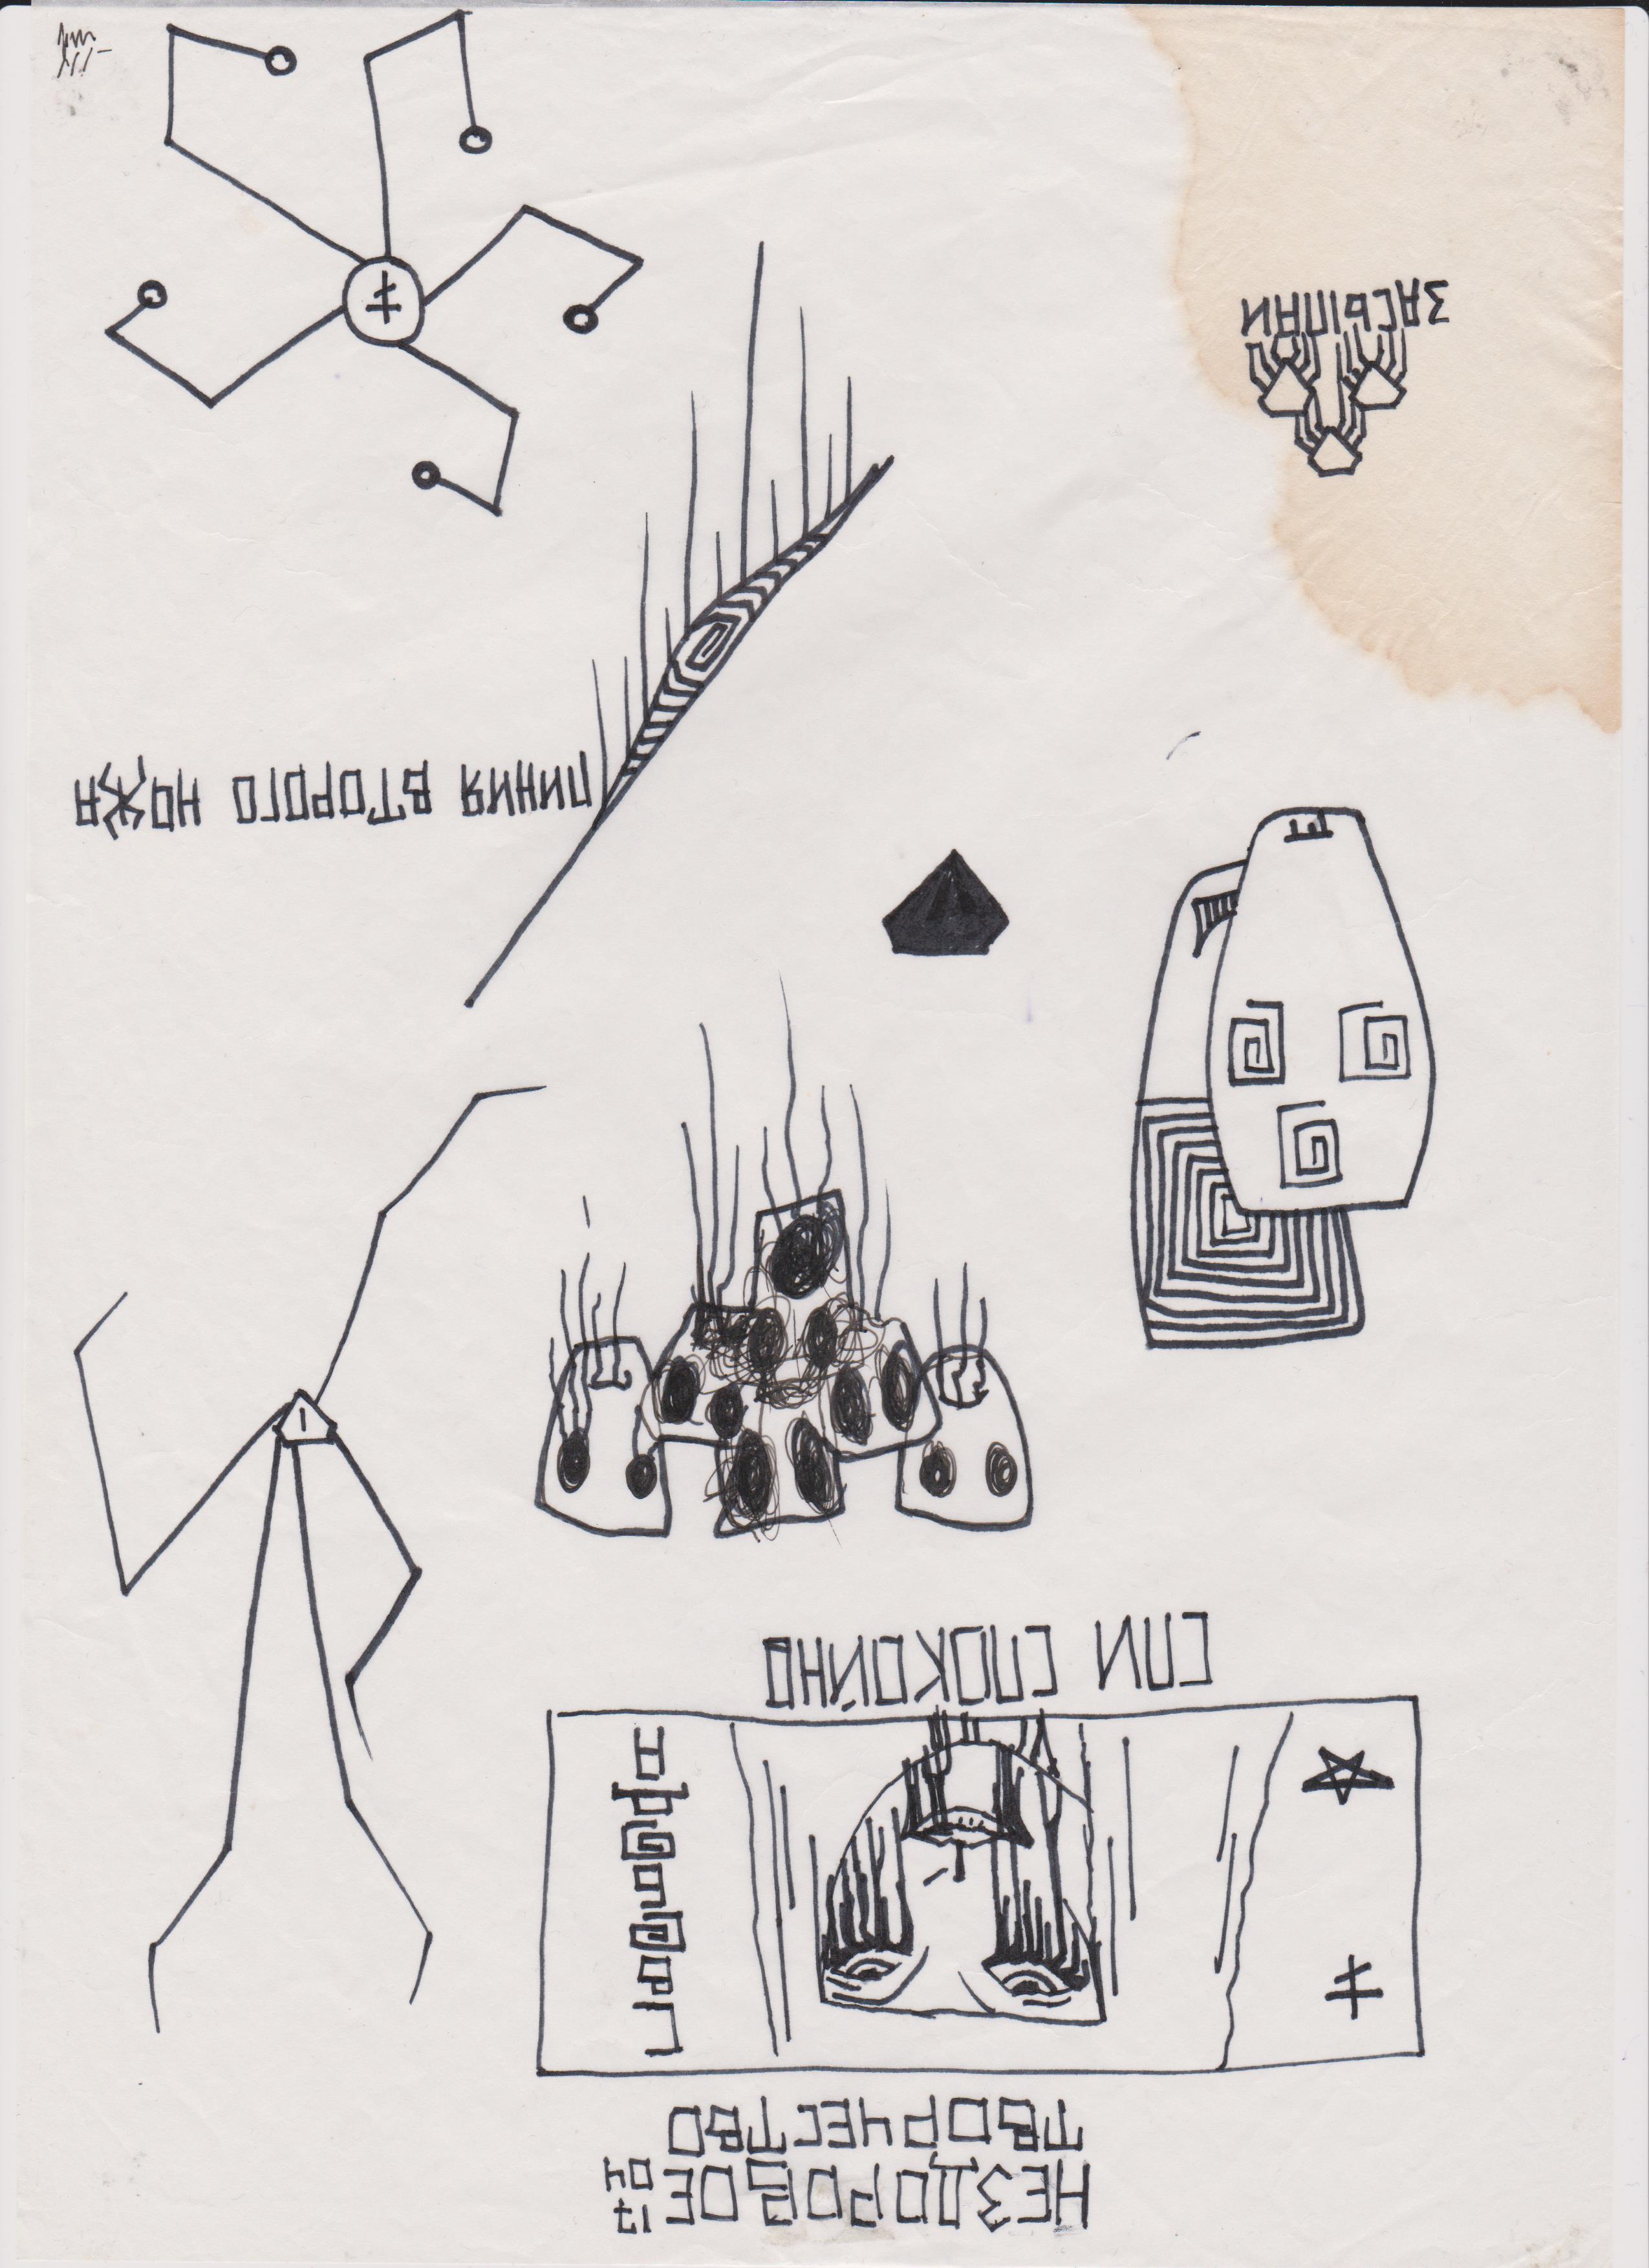 НЕЗДОРОВОЕ 17
04
ТВОРЧЕСТВО
СВОБОДА
СПИ СПОКОЙНО
ЛИНИЯ ВТОРОГО НОЖА
ЗАСЫПАЙ